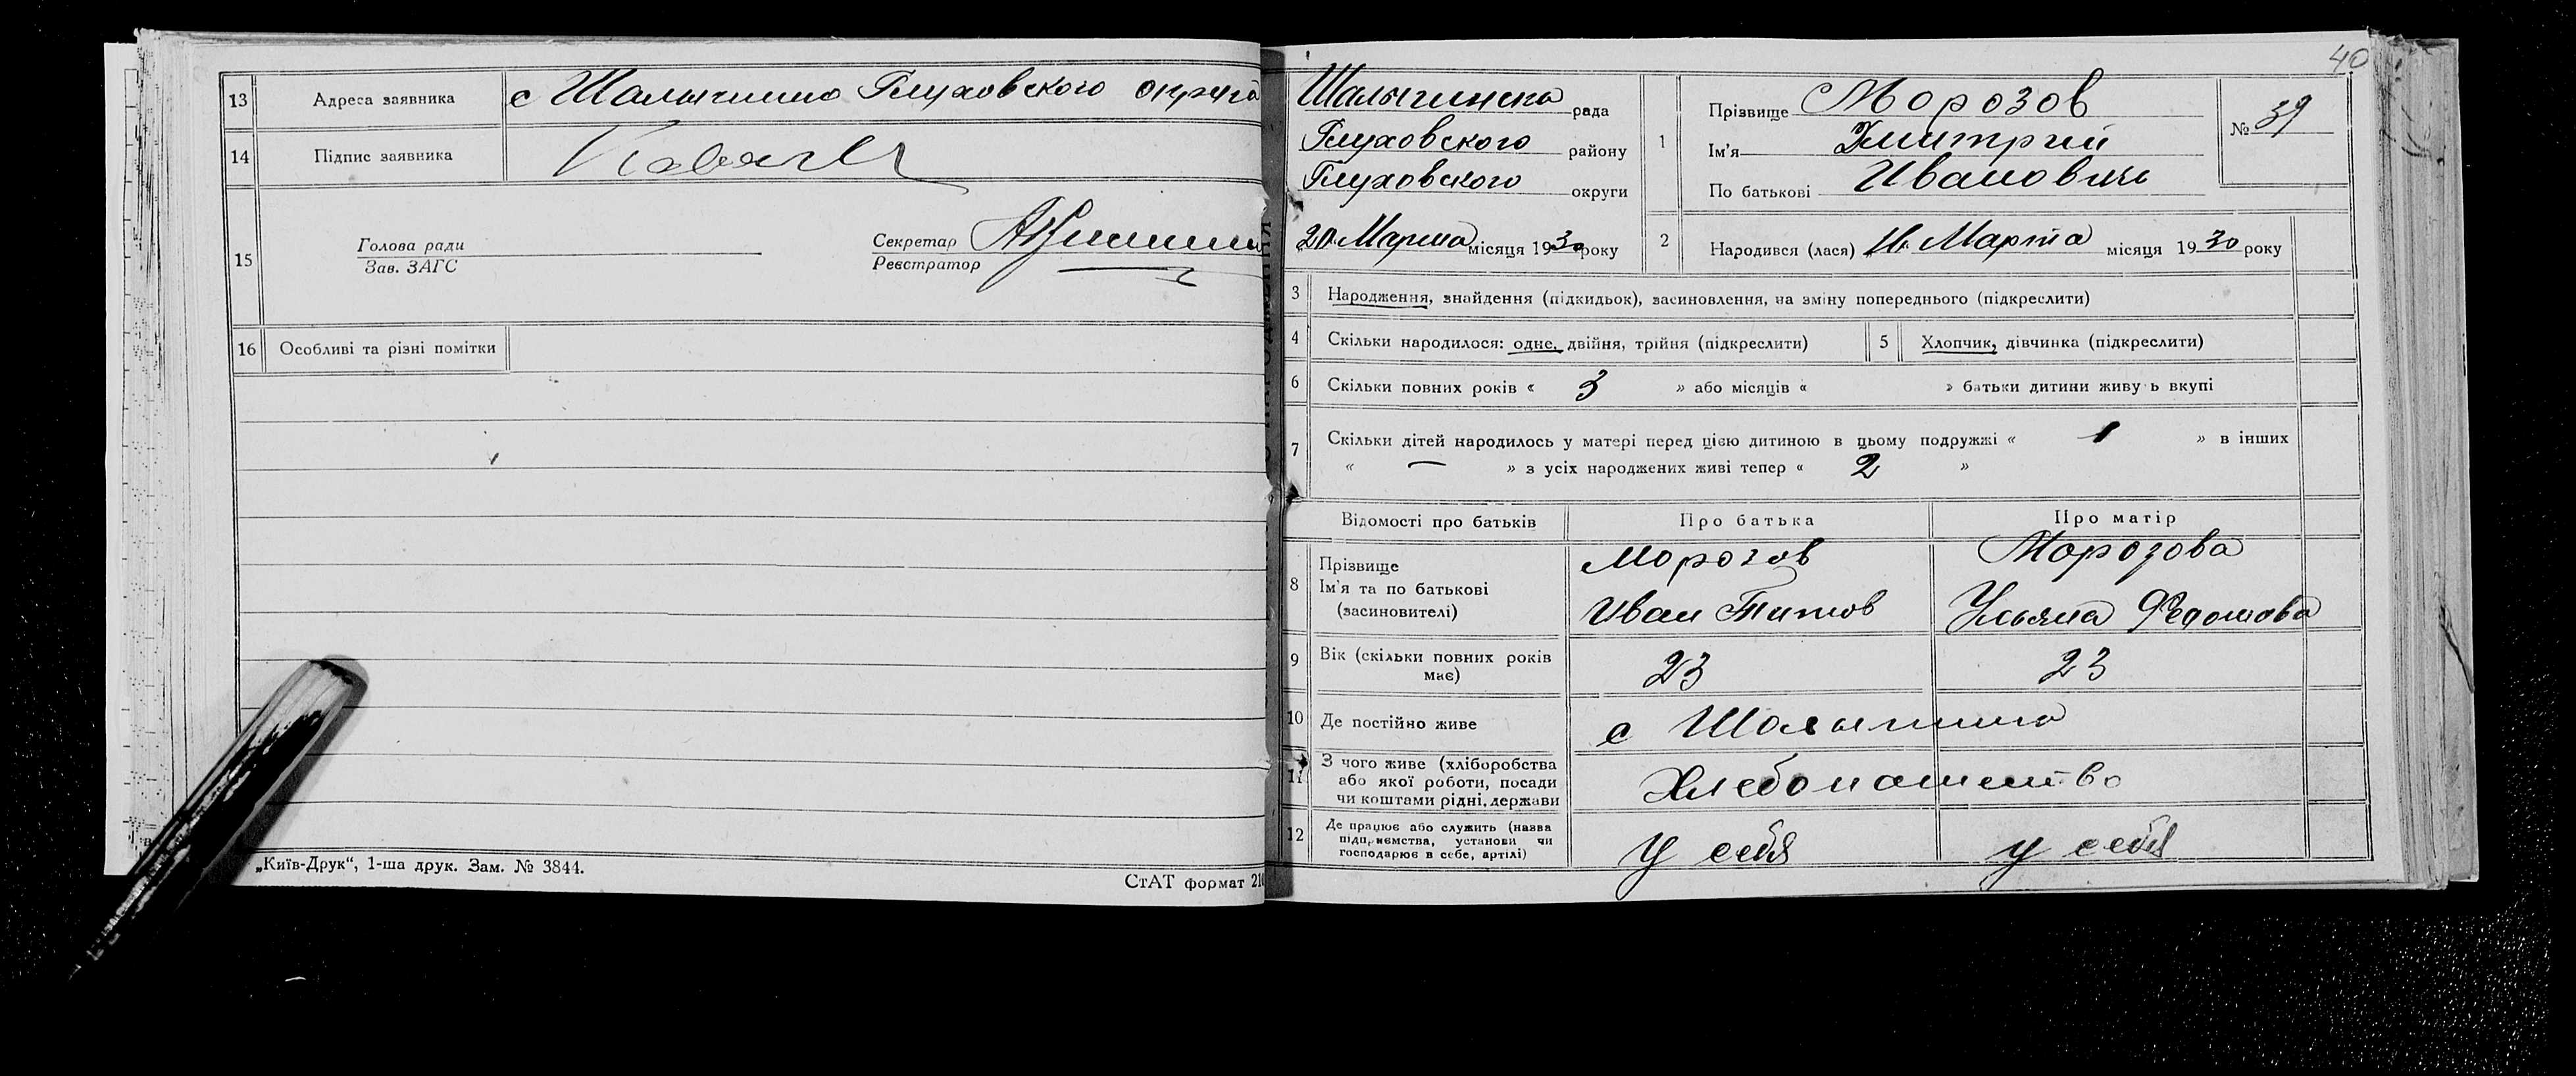 13 Адреса заявника с Шалыгино Глуховского округа
14 Підпис заявника
15 Голова ради
Зав. ЗАГС
Секретар
Реєстратор
16 Особливі та різні помітки
„Київ-Друк“, 1-ша друк. Зам. № 3844.
СтАТ формат 210
40
Шалыгинска рада
Глуховского району
Глуховского округи
20 Марта місяця 1930 року
1 Прізвище Морозов
Ім'я Дмитрий
По батькові Иванович
№ 39
2 Народився (лася) 16 Марта місяця 1930 року
3 Народження, знайдення (підкидьок), засиновлення, на зміну попереднього (підкреслити)
4 Скільки народилося: одне, двійня, трійня (підкреслити)
5 Хлопчик, дівчинка (підкреслити)
6 Скільки повних років « 3 » або місяців « » батьки дитини живуть вкупі
7 Скільки дітей народилось у матері перед цією дитиною в цьому подружжі « 1 » в інших
« — » з усіх народжених живі тепер « 2 »
Відомості про батьків Про батька Про матір
8 Прізвище Морозов Морозова
Ім'я та по батькові
(засиновителі) Иван Титов Ульяна Федотова
9 Вік (скільки повних років має) 23 23
10 Де постійно живе с Шалыгино
11 З чого живе (хліборобства
або якої роботи, посади
чи коштами рідні, держави Хлебопашество
12 Де працює або служить (назва
підприємства, установи чи
господарює в себе, артілі) у себя у себя